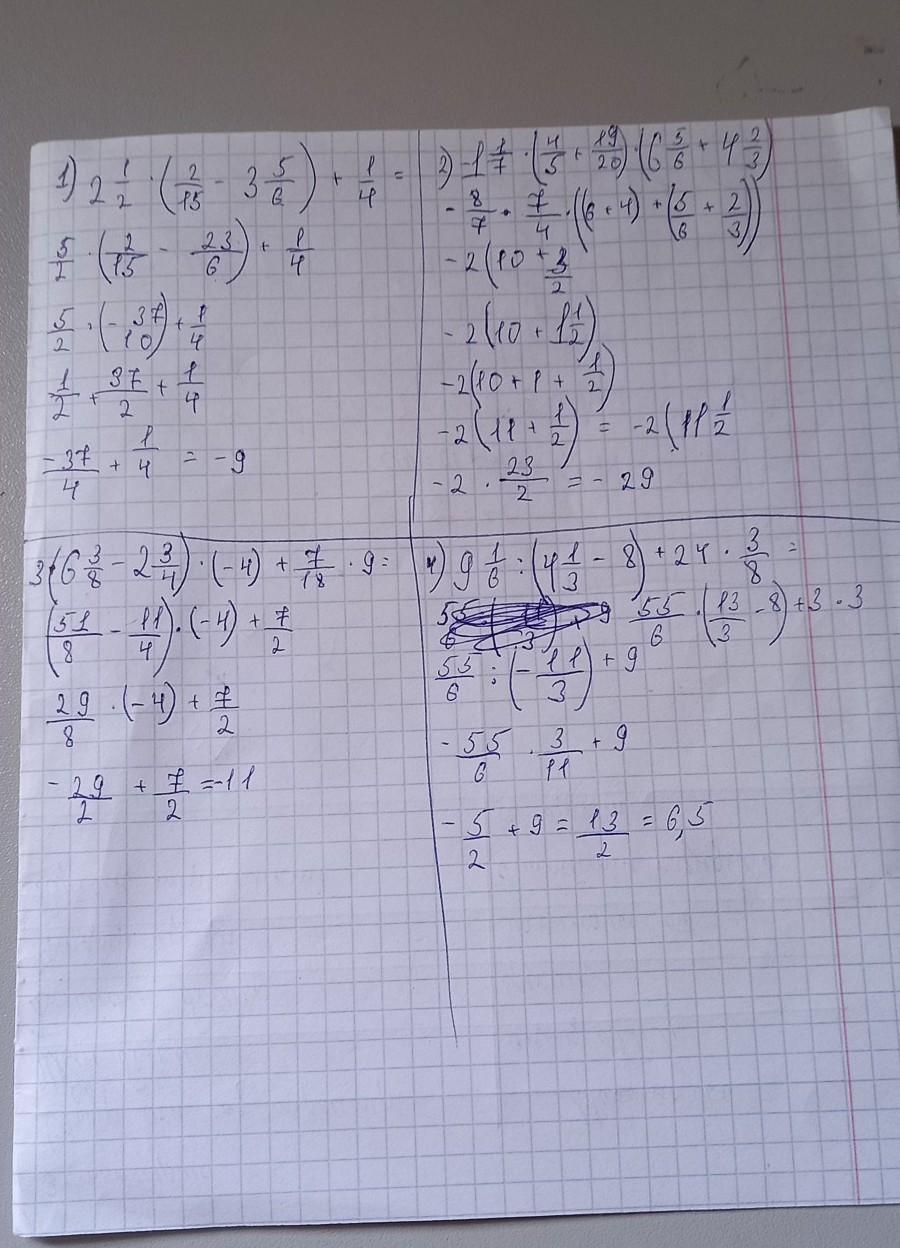 1) 2 1/2 · (2/15 - 3 5/6) + 1/4 =
5/2 · (2/15 - 23/6) + 1/4
5/2 · (- 37/10) + 1/4
1/2 · 37/2 + 1/4
-37/4 + 1/4 = -9
2) -1 1/7 · (4/5 + 19/20) · (6 5/6 + 4 2/3)
- 8/7 · 7/4 · ((6 + 4) + (5/6 + 2/3))
-2(10 + 3/2
-2(10 + 1 1/2)
-2(10 + 1 + 1/2)
-2(11 + 1/2) = -2(11 1/2
-2 · 23/2 = - 29
3 (6 3/8 - 2 3/4) · (-4) + 7/18 · 9 =
(51/8 - 11/4) · (-4) + 7/2
29/8 · (-4) + 7/2
- 29/2 + 7/2 = -11
4) 9 1/6 : (4 1/3 - 8) + 24 · 3/8 =
55/6 · (13/3 - 8) + 3 · 3
55/6 : (- 11/3) + 9
- 55/6 · 3/11 + 9
- 5/2 + 9 = 13/2 = 6,5